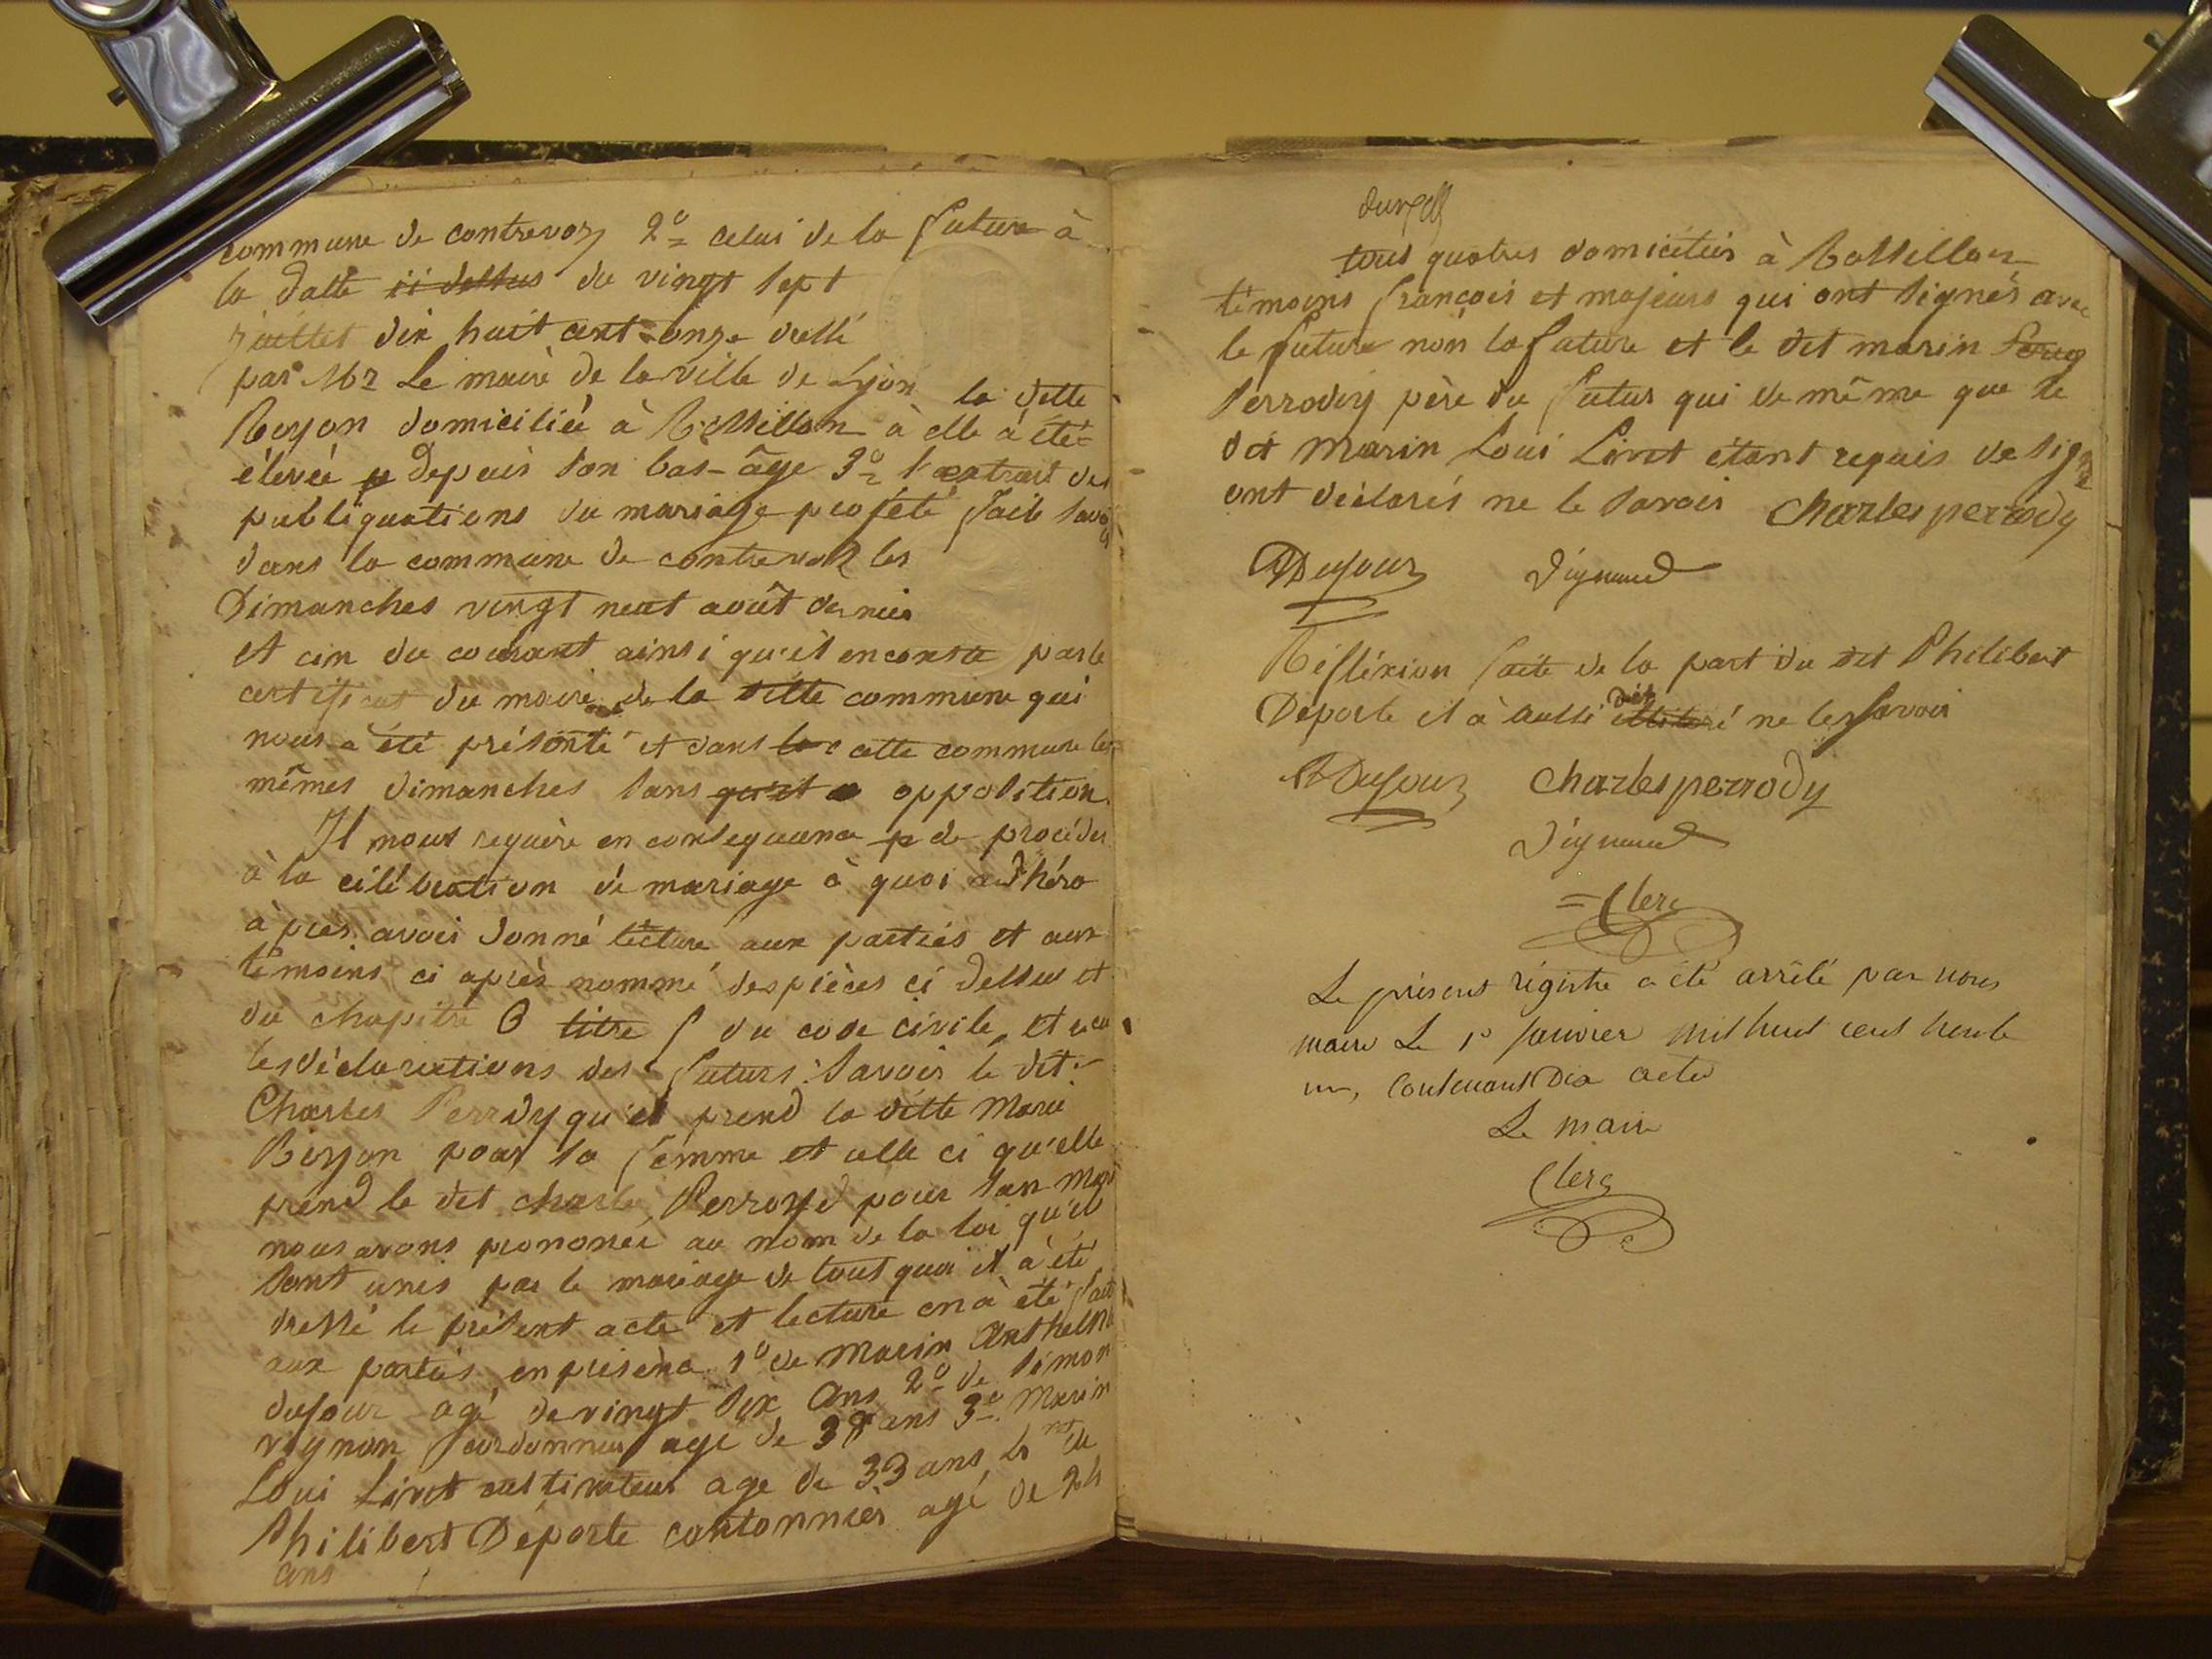 commune de contrevoz 2º celui de la future à
la datte ci dessus du vingt sept
juillet dix huit cent onze dressé
par Mr Le maire de la ville de Lyon la ditte
Royon domiciliée à Rossillon à elle à étéé
élevée depuis son bas-âge 3º l'extrait des
publiquations du mariage projété fait
dans la commune de contrevoz les
Dimanches vingt neuf août dernier
et cin du courant ainsi qu'il enconste par le
certificat du maire de la ditte commune qui
nous a été présenté et dans cette commune les
mêmes dimanches sans qu'il opposition
Il nous requère en consequance de procéder
à la célébration de mariage à quoi adhéro
àprès avoir donné lecture aux parties et aux
témoins ci après nommé des pièces ci dessus et
du chapitre 6 titre 5 du code civile et
les déclarations des futurs savoir le dit
Charles Perrdy qu'il prend la ditte Marie
Royon pour sa fémme et celle ci qu'elle
prend le dit charle Perroyd pour son mari
nous avons prononcé au nom de la loi qu'il
sont unis par le mariage de tout quoi il à été
dressé le présent acte et lecture en à été fait
aux parties en présence 1º de Marin Anthelme
dufour agé de vingt six ans 2º de Simon
vignon Cordonnier agé de 38 ans 3º Marin
Loui Livet cultivateur age de 33 ans de
Philibert Déporte cantonnier agé de 24
ans
tous quatres domiciliés à Rossillon
témoins françois et majeurs qui ont signés avec
le future non la future et le dit marin
Perrody père du futur qui de même que le
dit Marin Loui Livet étant requis de signe
ont déclarés ne le savoir Charles perrody
ADufour Vignand
Réfléxion faite de la part du dit Philibert
Déporte il à aussi ne les savoir
ADufour Charles perrody
Vignand
Clerc
Le présent régistre a été arrêté par nous
maire Le 1er Janvier mil huit cent trente
un, contenant Dix actes
Le maire
Clerc